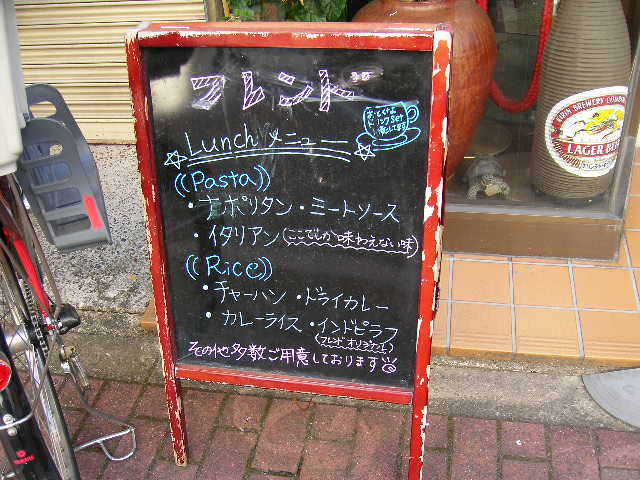 フレンド
おとくなよ
ドリンクSet
ご用意して〼
Lunch メニュー
((Pasta))
・ナポリタン・ミートソース
・イタリアン(ここでしか味わえない味)
((Rice))
・チャーハン・ドライカレー
・カレーライス・インドピラフ
(フレンド オリジナル)
その他多数ご用意しております
KIRIN BREWERY COMPANY
LAGER BEER
YAMAHA